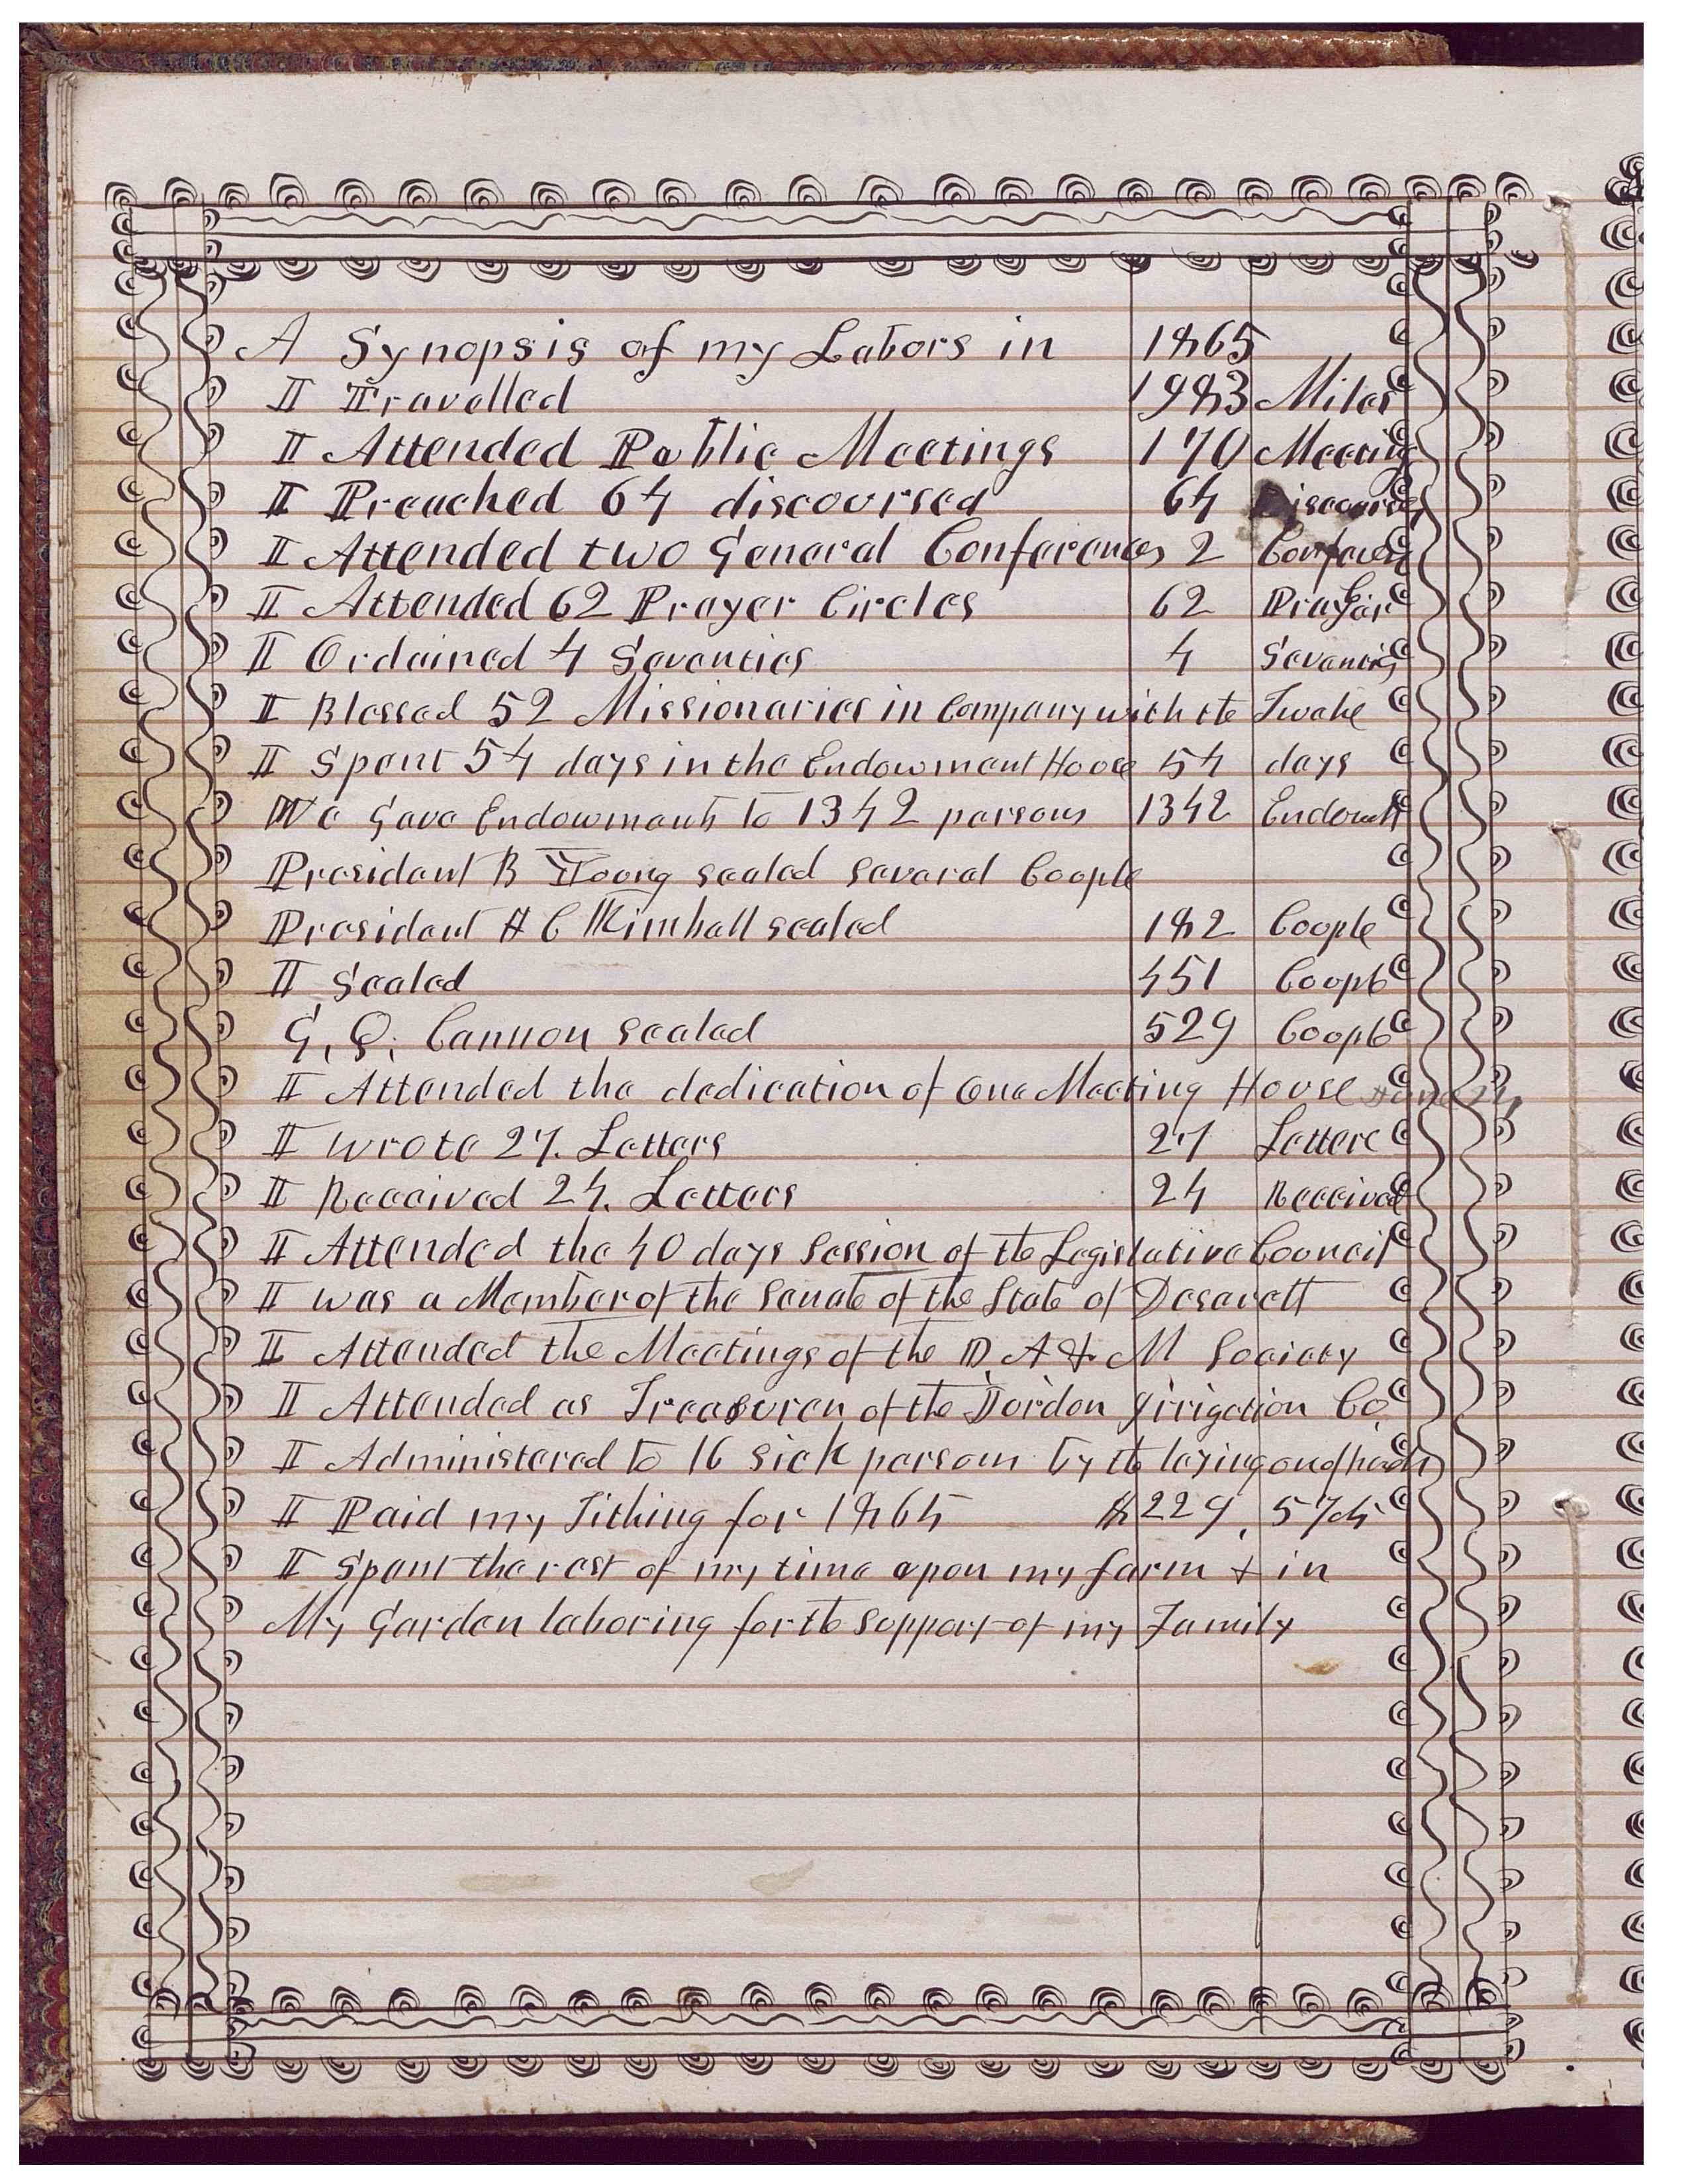 A Synopsis of my Labors in 1865
I Travelled 1983 Miles
I Attended Public Meetings 170 Meeting
I Preached 64 discourses 64 Discourses
I Attended two General Conferences 2 Conferen
I Attended 62 Prayer Circles 62 Pray Cir
I Ordained 4 Seventies 4 Seventies
I Blessed 52 Missionaries in Company with the Twelve
I Spent 54 days in the Endowment House 54 days
We Gave Endowments to 1342 persons 1342 Endowmt
President B Young sealed several Couple
President H C Kimball sealed 182 Couple
I Sealed 451 Couple
G, Q. Cannon sealed 529 Couple
I Attended the dedication of one Meeting House
I wrote 27. Letters 27 Letters
I Received 24. Letters 24 Received
I Attended the 40 days Session of the Legislative Council
I was a Member of the Senate of the State of Desarett
I Attended the Meetings of the D. A & M Society
I Attended as Treasurer of the Jordon Irrigation Co
I Administered to 16 sick persons by the laying on of hands
I Paid my Tithing for 1864 $229.57cts
I Spent the rest of my time upon my farm & in
My Garden laboring for the support of my Family